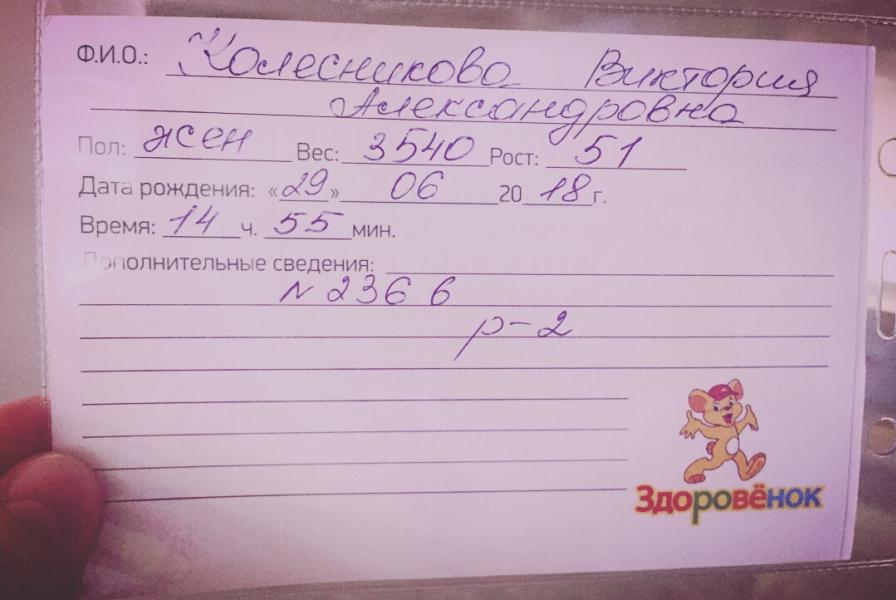 Ф.И.О.: Колесникова Виктория
Александровна
Пол: жен Вес: 3540 Рост: 51
Дата рождения: «29» 06 2018г.
Время: 14 ч. 55 мин.
Дополнительные сведения:
N 2366
р-2
Здоровёнок